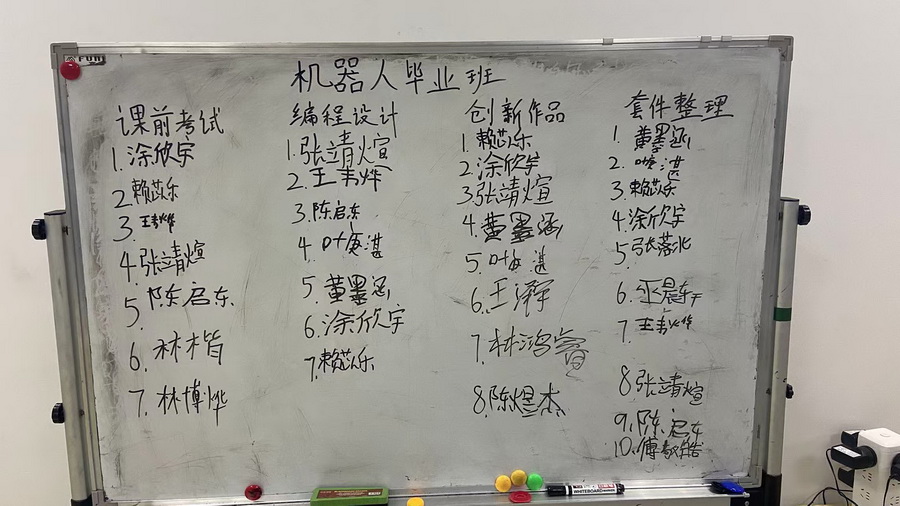 机器人毕业班
课前考试
1.涂欣宇
2.赖芯乐
3.王韦烨
4.张靖煊
5.陈启东
6.林楷
7.林博烨
编程设计
1.张靖煊
2.王韦烨
3.陈启东
4.叶海湛
5.黄墨涵
6.涂欣宇
7.赖芯乐
创新作品
1.赖芯乐
2.涂欣宇
3.张靖煊
4.黄墨涵
5.叶海湛
6.王泽宇
7.林鸿睿
8.陈煜杰
套件整理
1.黄墨涵
2.叶海湛
3.赖芯乐
4.涂欣宇
5.张落北
6.
7.王韦烨
8.张靖煊
9.陈启东
10.傅敬皓
WHITEBOARD